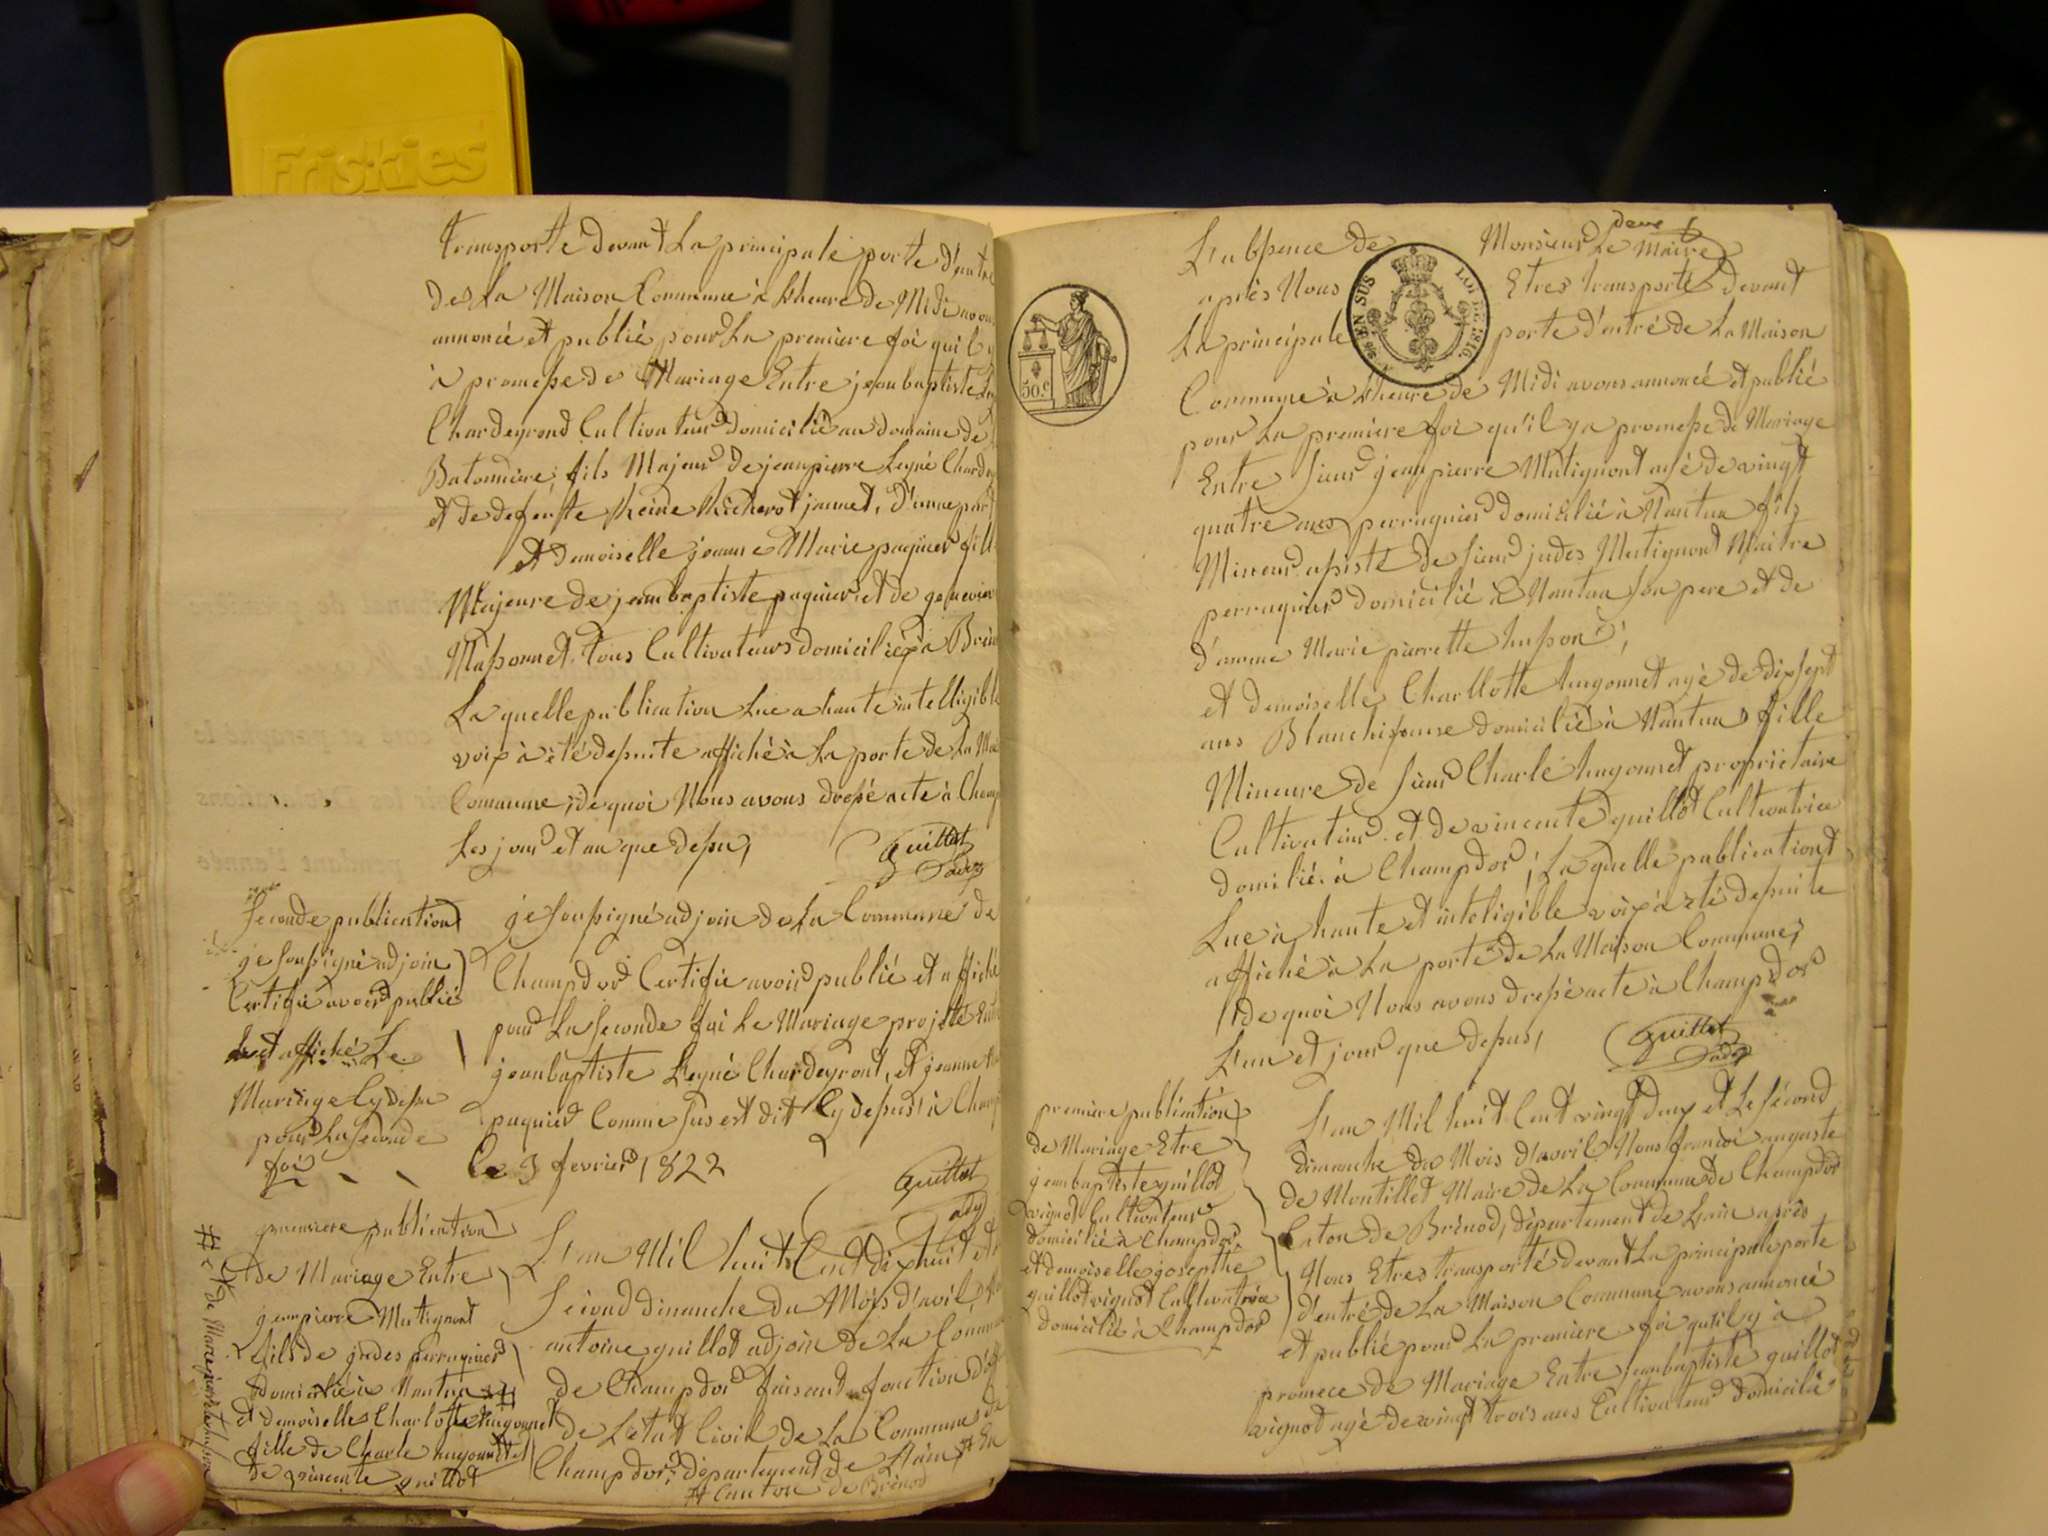 Friskies
transporté devant La principale porte d'entré
de La Maison Commune à Lheure de Midi avons
annoncé et publié pour La premiere foi quil y
à promesse de Mariage Entre jeanbaptiste
Chardeyrond Cultivateur domicilié au domaine de
Batonniere, fils Majeur de jeanpierre Leyné
et de defente Reine Richerot jannet, D'unepart
et demoiselle jeanne Marie paquier fille
Majeure de jeanbaptiste paquier et de
Massonnet. tous Cultivateurs domicilié à
La quelle publication Lue a haute intelligible
voix à été desuite affiché à La porte de La
Commune, de quoi Nous avons dressé acte à
Les jour et an que dessu,
Guillot
adj
Seconde publication
je soussigné adjoin
Certifie avoir publié
et affiché Le
Mariage Cydessu
pour La seconde
foi
je soussigné adjoin de La Commune de
Champdor Certifie avoir publié et affiché
pour La seconde foi Le Mariage projeté
jeanbaptiste Leyné Chardeyront, et jeanne
paquier Comme sus est dit Cy dessus, à
Le 3 fevrier 1822
Guillot
adj
premiere publication
de Mariage Entre
jeanpierre Matignont
fils de judes perruquier
domicilié à Nantua #
et demoiselle Charlotte hugonnet
fille de Charle hugonnet et
de vincente guillot
# et de Marie pierrette husson
L'an Mil huit Cent dixhuit
Second dimanche du Mois d'avril,
antoine guillot adjoin de La Commune
de Champdor faisant fonction
de L'état Civil de La Commune de
Champdor, département de Lain, #
# Canton de Brénod
L'absence de Monsieur Le Maire
après Nous Etres transporté devant
La principale porte d'entré de La Maison
Commune à Lheure de Midi avons annoncé et publié
pour La premiere foi qu'il y a promesse de Mariage
Entre sieur jeanpierre Matignont agé de vingt
quatre ans perruquier domicilié à Nantua fils
Mineur assisté de sieur judes Matignont Maitre
perruquier domicilié à Nantua son pere et de
Marie pierrette husson,
et demoiselle Charllotte hugonnet agé de dixsept
ans Blanchisseuse domicilié à Nantua fille
Mineure de sieur Charle hugonnet propriétaire
Cultivateur et de vincente guillot Cultivatrice
domilié à Champdor, La quelle publication
Lue à haute et inteligible voix à été desuite
affiché à La porte de La Maison Commune,
de quoi Nous avons dressé acte à Champdor
L'an et jour que dessus,
Guillot
adj
50.c
EN SUS
LOI DE 1816.
premiere publication
de Mariage Etre
jeanbaptiste guillot
vignot Cultivateur
domicilié à Champdor
et demoiselle josepthe
guillot vignot Cultivatrice
domicilié à Champdor
L'an Mil huit Cent vingt deux et Le second
dimanche du Mois d'avril Nous françoi auguste
de Montillet Maire de La Commune de Champdor
Caton de Brénod, département de Lain après
Nous Etres transporté devant La principale porte
d'entré de La Maison Commune avons annoncé
et publié pour La premiere foi quil y à
promece de Mariage Entre jeanbaptiste guillot
vignot agé de vingt trois ans Cultivateur domicilié